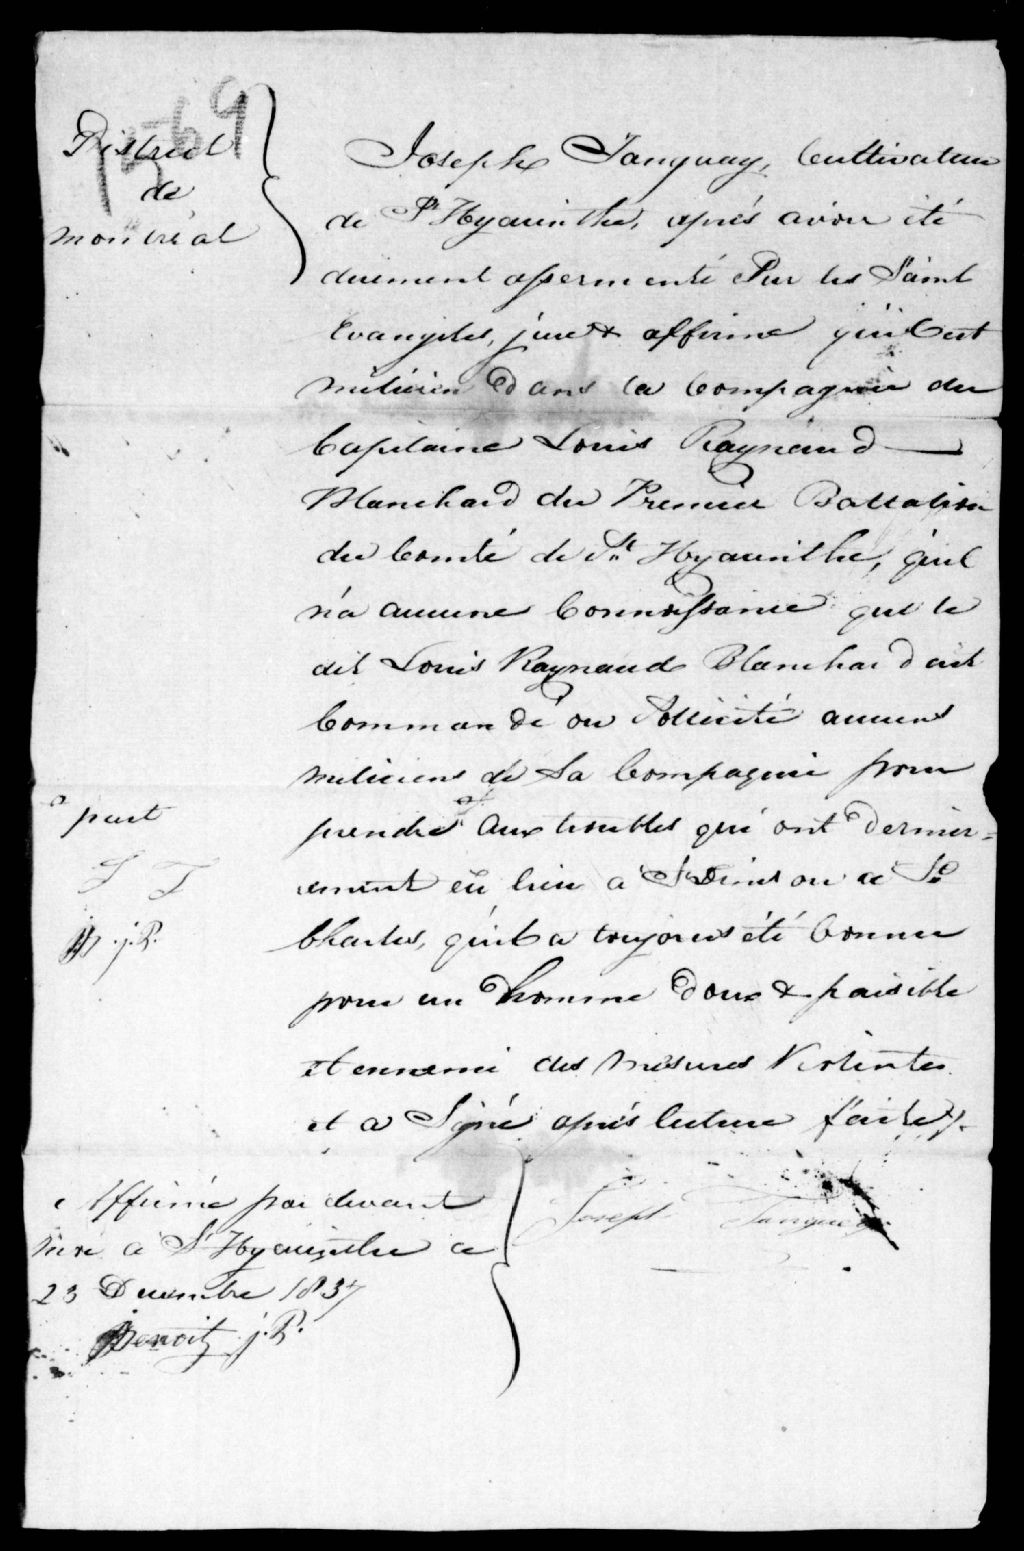 1569
District
de
Montréal
Joseph Tanguay, Cultivateur
de St Hyacinthe, après avoir été
duement assermenté Sur les Saint
Evangiles, jure & affirme qu'il est
milicien dans la Compagnie du
Capitaine Louis Raynaud
Blanchard du Premier Battalion
du Comté de St Hyacinthe, qu'il
n'a aucune Connoissance que le
dit Louis Raynaud Blanchard ait
Commandé ou Sollicité aucuns
miliciens de Sa Compagnie pour
prendre aux troubles qui ont dernier=
ement eû lieu a St Denis ou a St
Charles, qu'il a toujours été Connu
pour un homme doux & paisible
et ennemi des mesures Violentes
et a Signé après lecture faite
a part
J T
B. j.P.
Affirmé par devant
moi a St Hyacinthe ce
23 Decembre 1837
Benoit j.P.
Joseph Tanguay